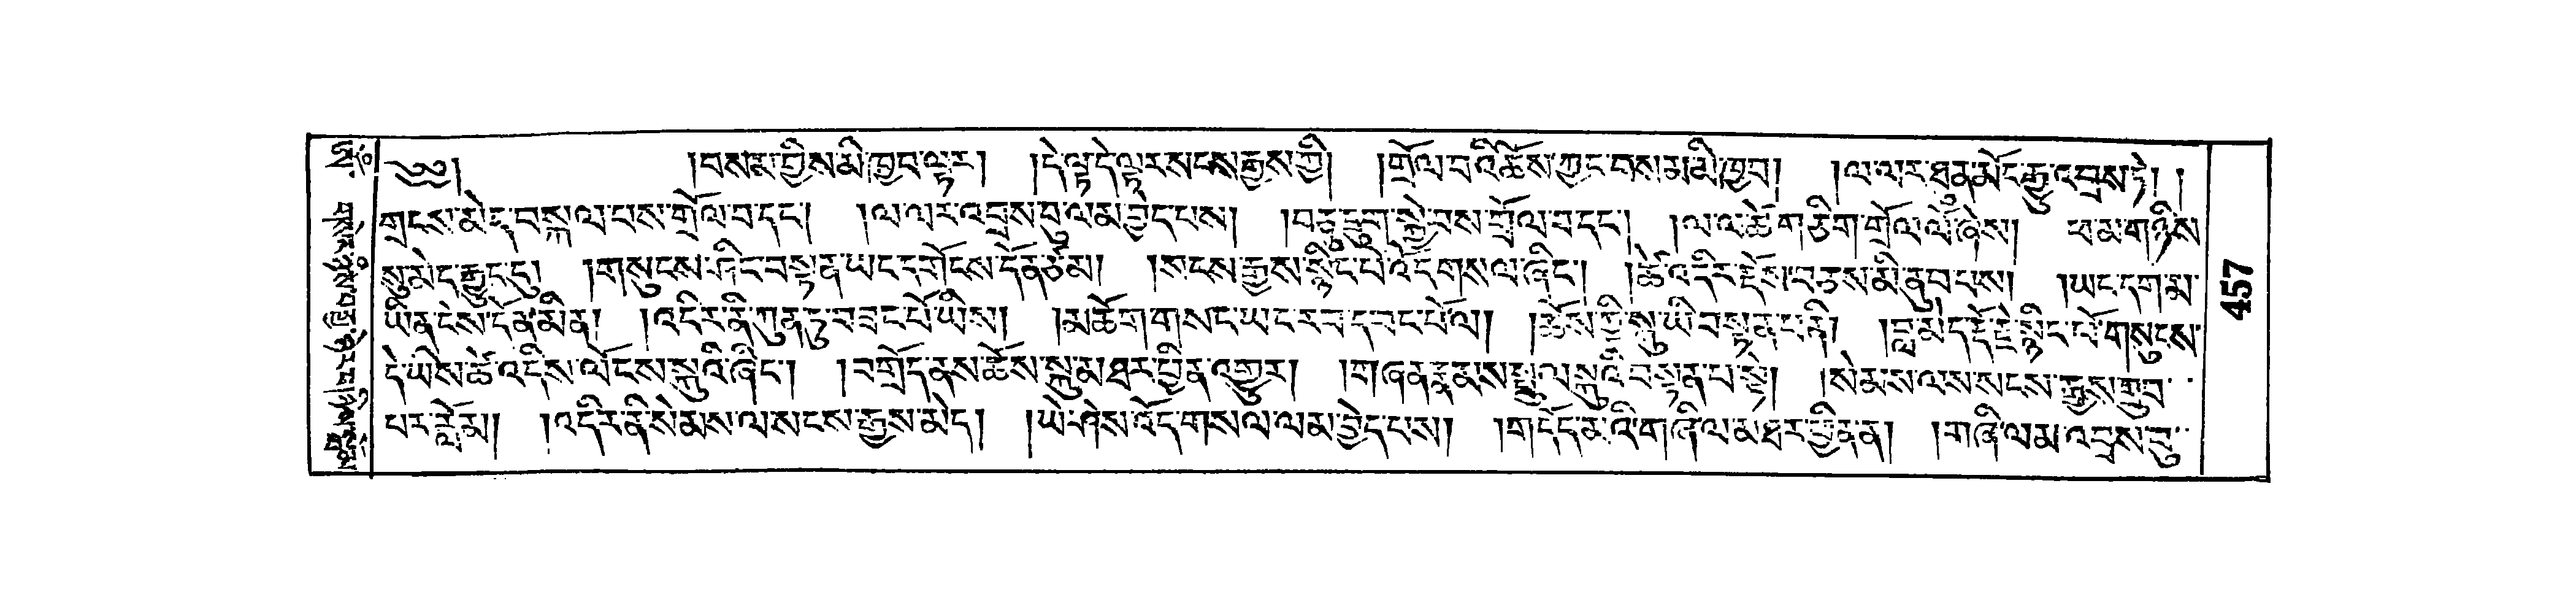 ༄༅། །བསམ་གྱིས་མི་ཁྱབ་ལྟར། །དེ་ལྟ་དེ་ལྟར་སངས་རྒྱས་ཀྱི། །གྲོལ་བའི་ཆོས་ཀྱང་བསམ་མི་ཁྱབ། །ལ་ལར་ཐུན་མོང་རྒྱུ་འབྲས་ཏེ། །
གྲངས་མེད་བསྐལ་པས་གྲོལ་བ་དང་། །ལ་ལར་འབྲས་བུ་ལམ་བྱེད་པས། །བཅུ་དྲུག་སྐྱེ་བས་གྲོལ་བ་དང་། །ལ་ལ་ཚེ་གཅིག་གྲོལ་ལོ་ཞེས། ཕ་མ་གཉིས་
སུ་མེད་རྒྱུད་དུ། །གསུངས་ཤིང་བསྟན་ཡང་དགོངས་དོན་ཙམ། །སངས་རྒྱས་སྙིང་པོ་འོད་གསལ་ཞིང་། །ཚེ་འདིར་རྗེས་བཅས་མི་ནུབ་པས། །ཡང་དག་མ་
ཡིན་ངེས་དོན་མིན། །འདིར་ནི་ཀུན་ཏུ་བཟང་པོ་ཡིས། །མཆོག་གསང་ཡང་རབ་དབང་པོ་ལ། །ཆོས་ཀྱི་སྐུ་ཡི་བསྟན་པ་ནི། །བླ་མེད་རྡོ་རྗེ་སྙིང་པོ་གསུངས་
དེ་ཡིས་ཚེ་འདིས་ལོངས་སྐུའི་ཞིང་། །བགྲོད་ནས་ཆོས་སྐུ་མཐར་ཕྱིན་འགྱུར། །གཞན་རྣམས་སྤྲུལ་སྐུའི་བསྟན་པ་སྟེ། །སེམས་ལས་སངས་རྒྱས་གྲུབ་
པར་རློམ། །འདིར་ནི་སེམས་ལ་སངས་རྒྱས་མེད། །ཡེ་ཤེས་འོད་གསལ་ལམ་བྱེད་པས། །གདོད་མའི་གཞི་ལ་མཐར་ཕྱིན་ན། །གཞི་ལམ་འབྲས་བུ་
457